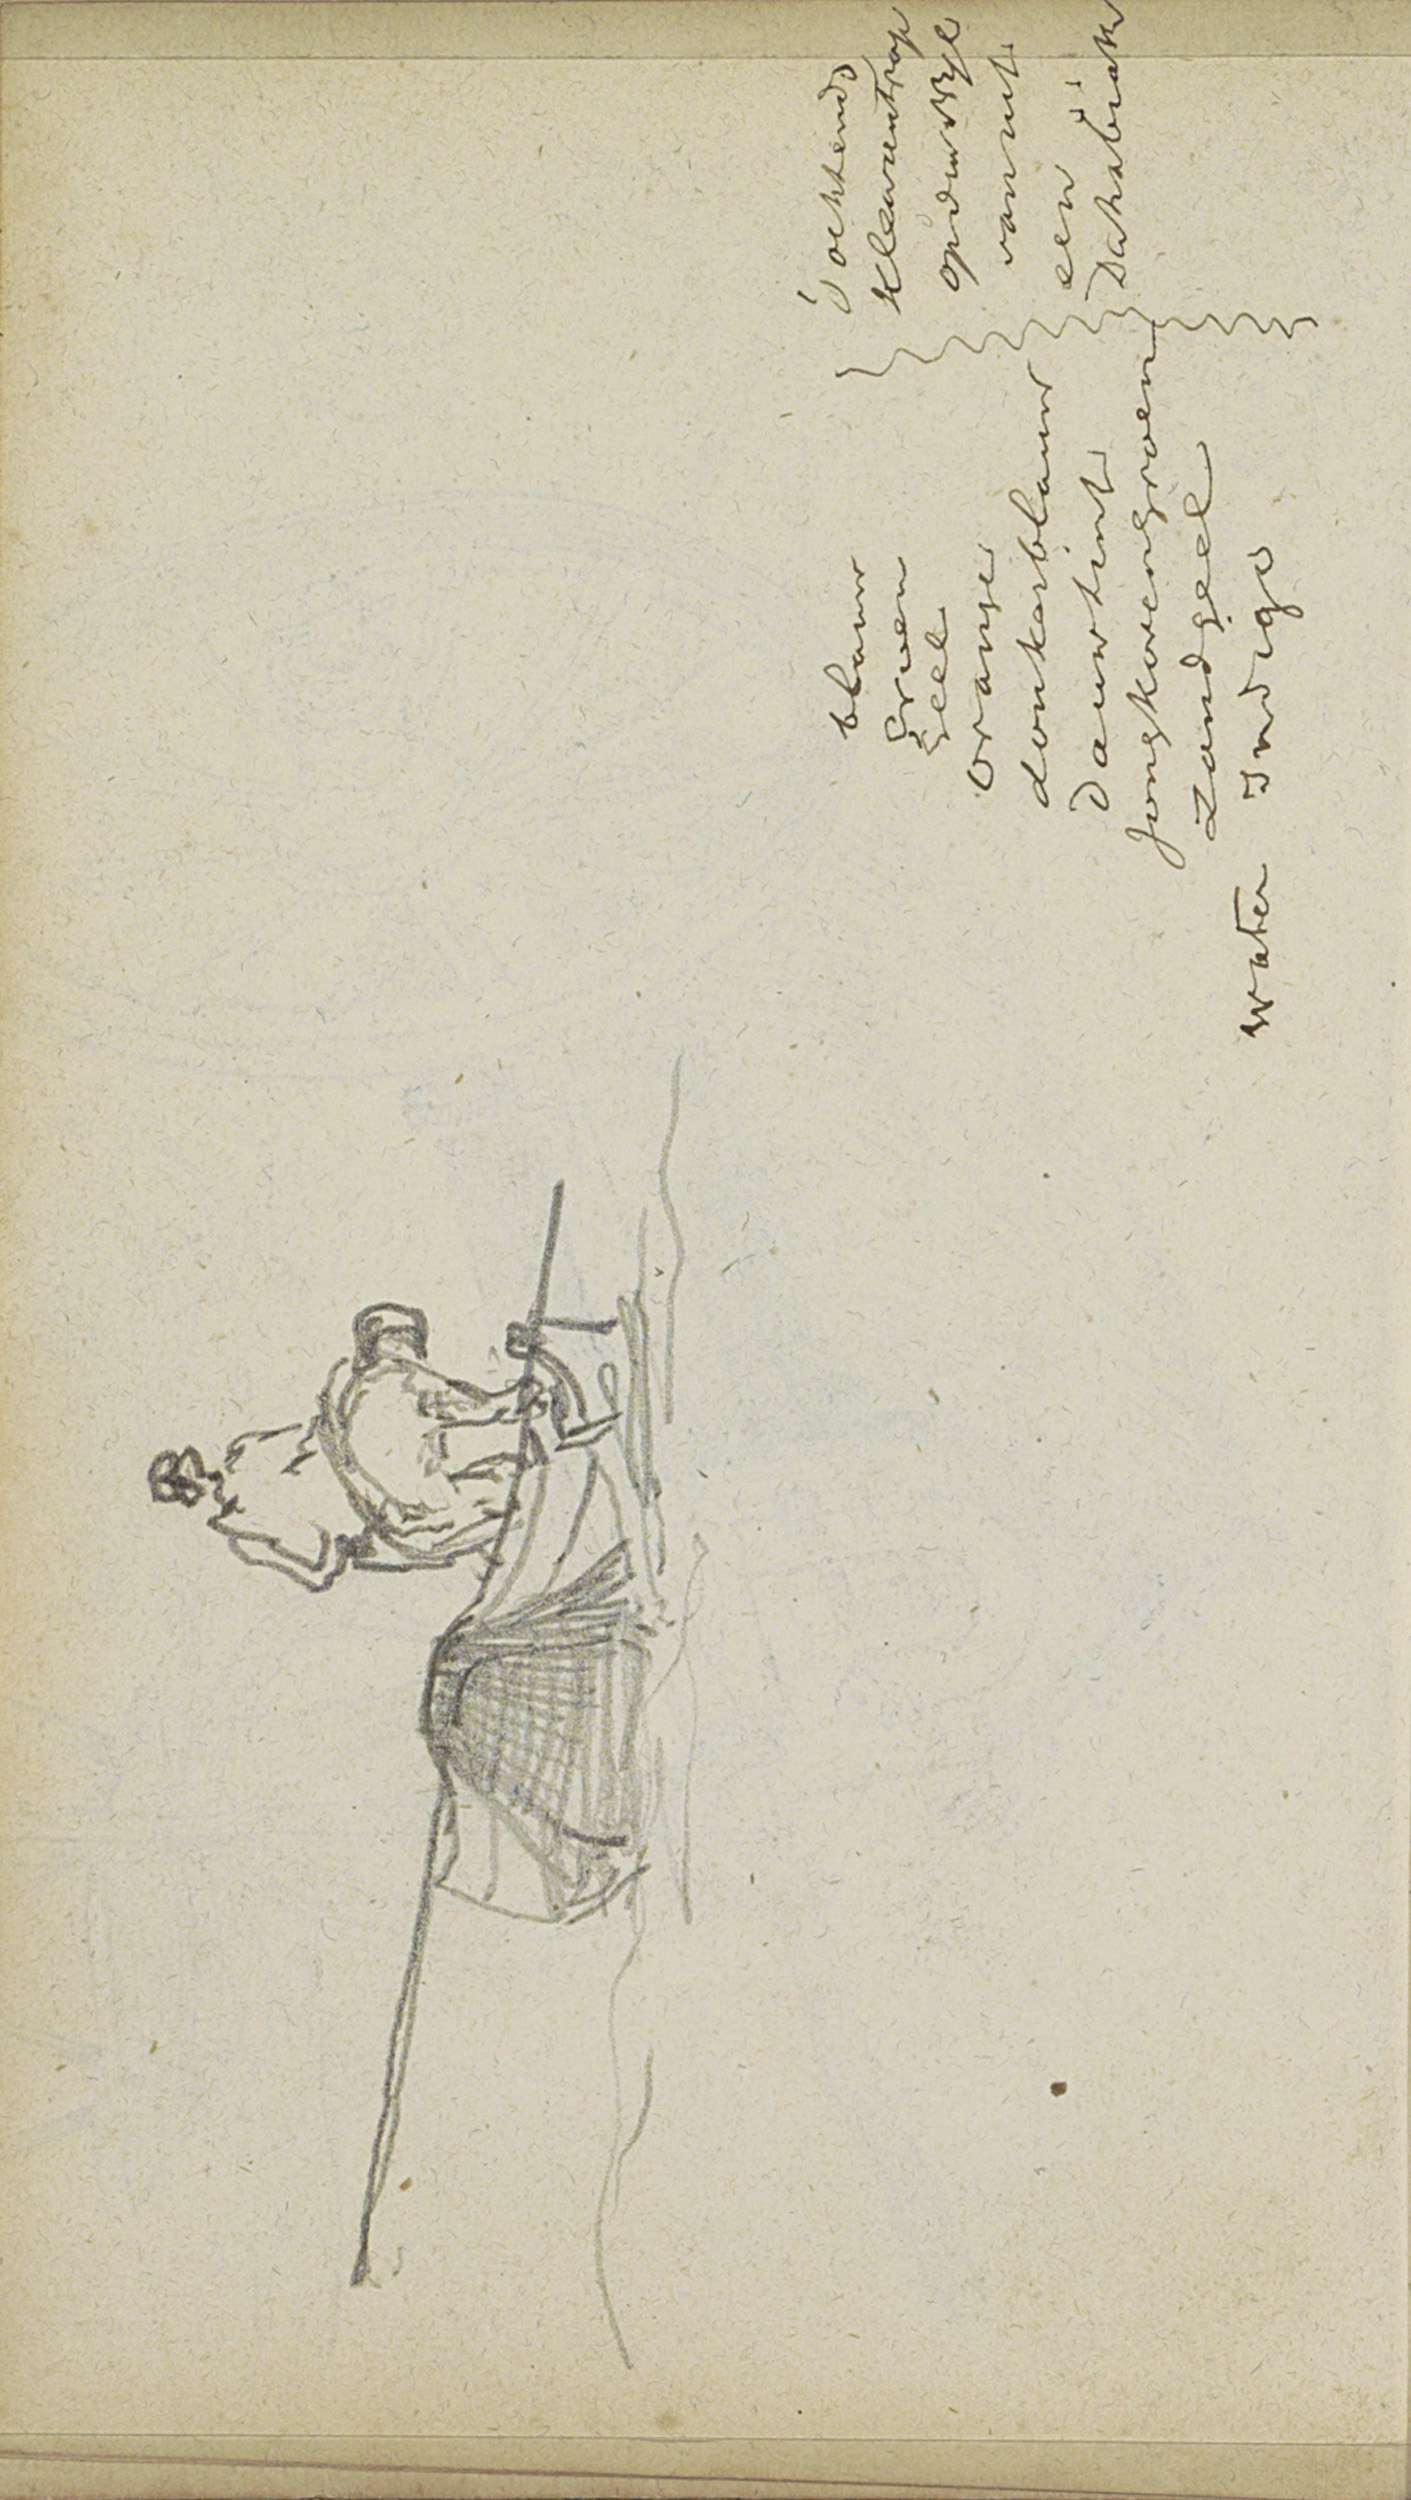 blauw
Groen
geel
oranje
donkerblauw
Dauwtint
jongkorengroen
zandgeel
water Indigo
's ochtends
kleurentrap
op den Nijl
vanuit
een
Dahabiah